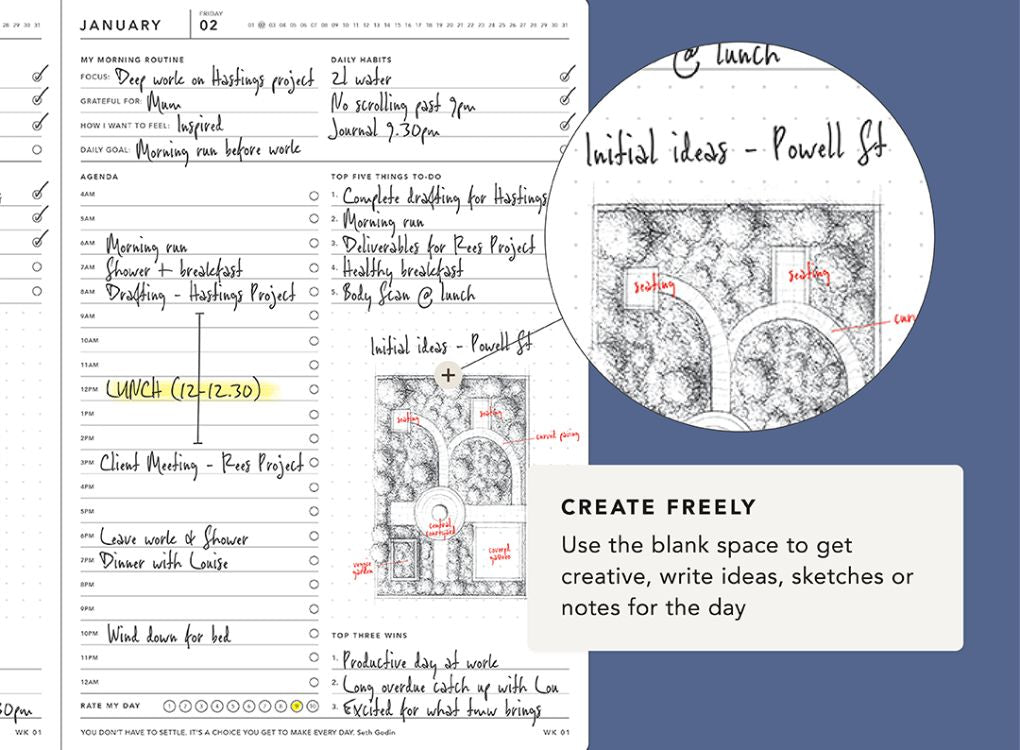 28 29 30 31
JANUARY
FRIDAY
02
01 02 03 04 05 06 07 08 09 10 11 12 13 14 15 16 17 18 19 20 21 22 23 24 25 26 27 28 29 30 31
MY MORNING ROUTINE
FOCUS: Deep work on Hastings project
GRATEFUL FOR: Mum
HOW I WANT TO FEEL: Inspired
DAILY GOAL: Morning run before work
DAILY HABITS
2l water
No scrolling past 9pm
Journal 9.30pm
AGENDA
4AM
5AM
6AM Morning run
7AM Shower + breakfast
8AM Drafting - Hastings Project
9AM
10AM
11AM
12PM LUNCH (12-12.30)
1PM
2PM
3PM Client Meeting - Rees Project
4PM
5PM
6PM Leave work & Shower
7PM Dinner with Louise
8PM
9PM
10PM Wind down for bed
11PM
12AM
RATE MY DAY 1 2 3 4 5 6 7 8 9 10
TOP FIVE THINGS TO-DO
1. Complete drafting for Hastings
2. Morning run
3. Deliverables for Rees Project
4. Healthy breakfast
5. Body Scan @ lunch
Initial ideas - Powell St
seating
seating
curved paving
central
courtyard
veggie
garden
covered
gazebo
TOP THREE WINS
1. Productive day at work
2. Long overdue catch up with Lou
3. Excited for what tmw brings
YOU DON'T HAVE TO SETTLE. IT'S A CHOICE YOU GET TO MAKE EVERY DAY. Seth Godin
WK 01
30pm
WK 01
@ lunch
Initial ideas - Powell St
seating
seating
curv
CREATE FREELY
Use the blank space to get
creative, write ideas, sketches or
notes for the day